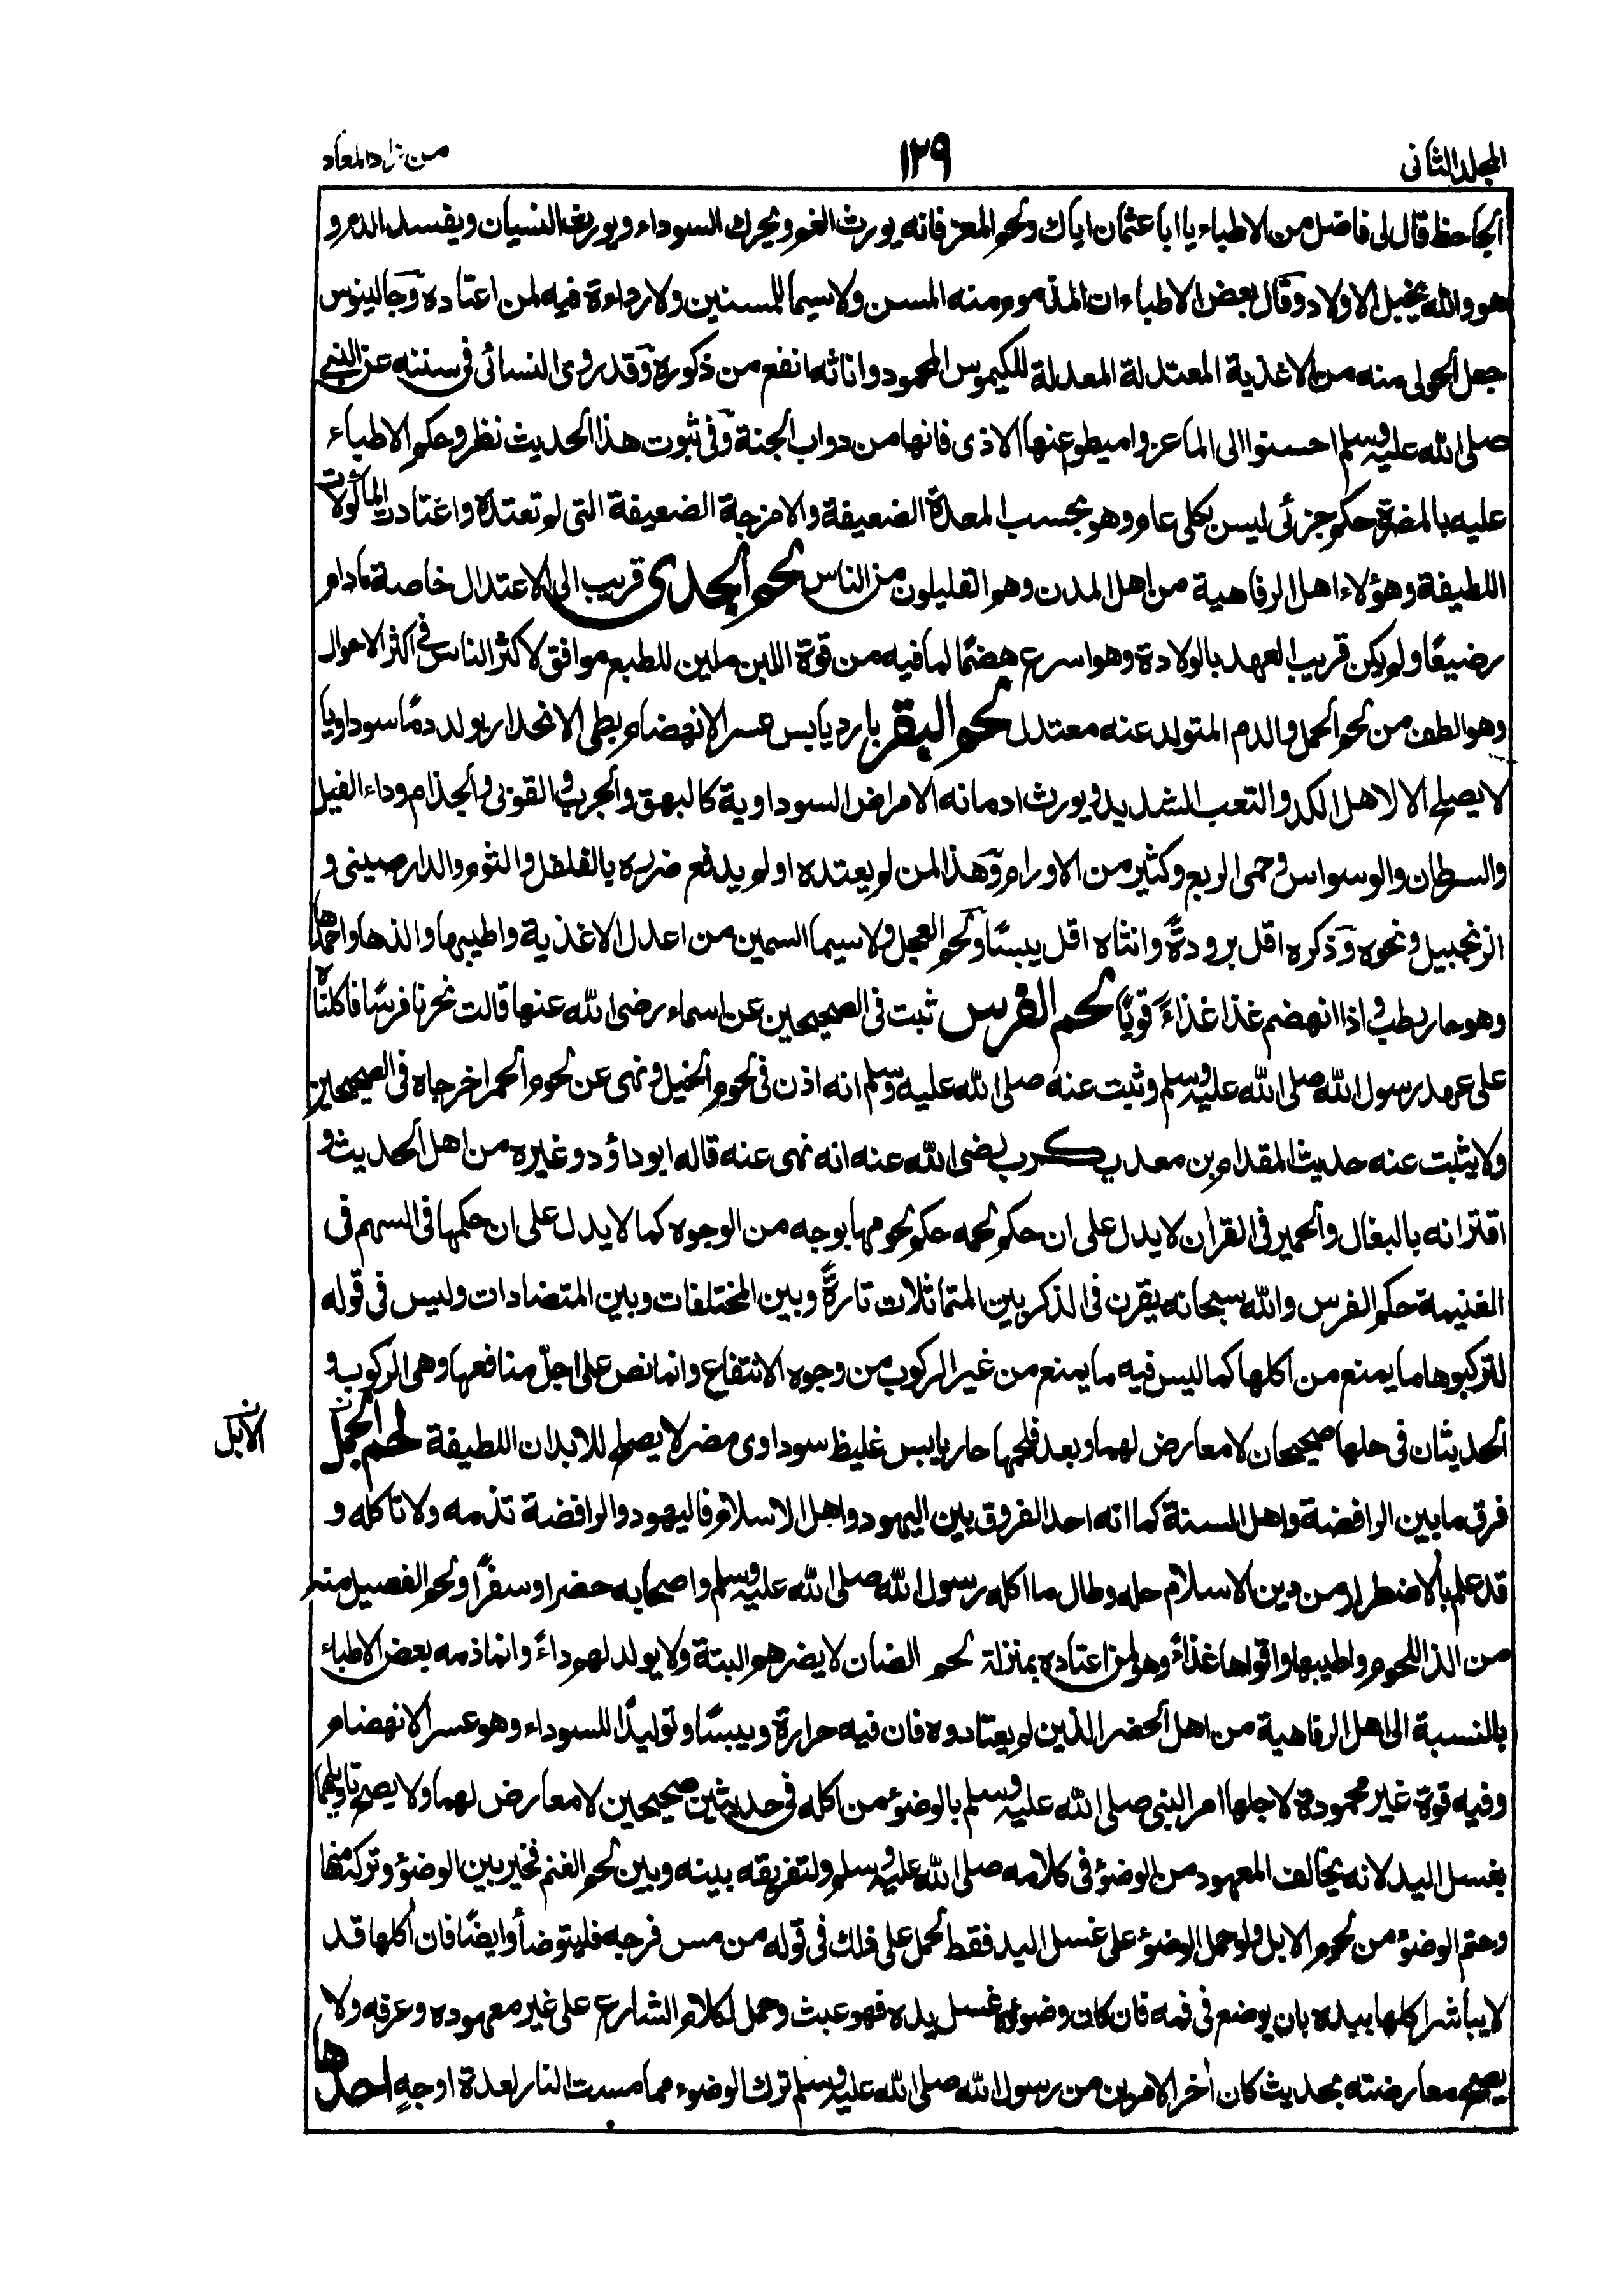 المجلد الثانى
١٢٩
من زاد المعاد
الجاحظ قال لى فاضل من الاطباء يا ابا عثمان اياك ولحم المعز فانه يورث الغم ويحرك السوداء ويورث النسيان ويفسد الدم و
هو والله يخبل الاولاد وقال بعض الاطباء ان المذموم منه المسن ولاسيما للمسنين ولا رداءة فيه لمن اعتاده وجالينوس
جعل الحولى منه من الاغذية المعتدلة المعدلة للكيموس المحمود واناثه انفع من ذكوره وقد روى النسائى فى سننه عن النبى
صلى الله عليه وسلم احسنوا الى الماعز واميطوا عنها الاذى فانها من دواب الجنة وفى ثبوت هذا الحديث نظر وحكم الاطباء
عليه بالمضرة حكم جزئى ليس بكلى عام وهو بحسب المعدة الضعيفة والامزجة الضعيفة التى لم تعتده واعتادت المأكولات
اللطيفة وهؤلاء اهل الرفاهية من اهل المدن وهم القليلون من الناس لحم الجدى قريب الى الاعتدال خاصة مادام
رضيعًا ولم يكن قريب العهد بالولادة وهو اسرع هضمًا لما فيه من قوة اللبن ملين للطبع موافق لاكثر الناس فى اكثر الاحوال
وهو الطف من لحم الحمل والدم المتولد عنه معتدل لحم البقر بارد يابس عسر الانهضام بطئ الانحدار يولد دمًا سوداويا
لا يصلح الا لاهل الكد والتعب الشديد ويورث ادمانه الامراض السوداوية كالبهق والجرب والقوبى والجذام وداء الفيل
والسرطان والوسواس وحمى الربع وكثير من الاورام وهذا لمن لم يعتده او لم يدفع ضرره بالفلفل والثوم والدارصينى و
الزنجبيل ونحوه وذكره اقل برودةً وانثاه اقل يبسًا ولحم العجل ولاسيما السمين من اعدل الاغذية واطيبها والذها واحمدها
وهو حار رطب واذا انهضم غذا غذاءً قويًا لحم الفرس ثبت فى الصحيحين عن اسماء رضى الله عنها قالت نحرنا فرسًا فاكلناه
على عهد رسول الله صلى الله عليه وسلم وثبت عنه صلى الله عليه وسلم انه اذن فى لحوم الخيل ونهى عن لحوم الحمر اخرجاه فى الصحيحين
ولا يثبت عنه حديث المقدام بن معدى كرب رضى الله عنه انه نهى عنه قاله ابو داؤد وغيره من اهل الحديث و
اقترانه بالبغال والحمير فى القرآن لا يدل على ان حكم لحمه حكم لحومها بوجه من الوجوه كما لا يدل على ان حكمها فى السهم فى
الغنيمة حكم الفرس والله سبحانه يقرن فى الذكر بين المتماثلات تارةً وبين المختلفات وبين المتضادات وليس فى قوله
لتركبوها ما يمنع من اكلها كما ليس فيه ما يمنع من غير الركوب من وجوه الانتفاع وانما نص على اجلّ منافعها وهى الركوب و
الحديثان فى حلها صحيحان لا معارض لهما وبعد فلحمها حار يابس غليظ سوداوى مضر لا يصلح للابدان اللطيفة لحم الجمل
الابل
فرق ما بين الرافضة واهل السنة كما انه احد الفروق بين اليهود واهل الاسلام فاليهود والرافضة تذمه ولا تاكله و
قد علم بالاضطرار من دين الاسلام حله وطال ما اكله رسول الله صلى الله عليه وسلم واصحابه حضرا وسفرًا ولحم الفصيل منه
من الذ اللحوم واطيبها واقواها غذاءً وهو لمن اعتاده بمنزلة لحم الضان لا يضرهم البتة ولا يولد لهم داءً وانما ذمه بعض الاطباء
بالنسبة الى اهل الرفاهية من اهل الحضر الذين لم يعتادوه فان فيه حرارة ويبسًا وتوليدًا للسوداء وهو عسر الانهضام
وفيه قوة غير محمودة لاجلها امر النبى صلى الله عليه وسلم بالوضوء من اكله فى حديثين صحيحين لا معارض لهما ولا يصح تاويلهما
بغسل اليد لانه يخالف المعهود من الوضوء فى كلامه صلى الله عليه وسلم ولتفريقه بينه وبين لحم الغنم فخير بين الوضوء وتركه منها
وحتم الوضوء من لحوم الابل ولو حمل الوضوء على غسل اليد فقط لحمل على ذلك فى قوله من مس فرجه فليتوضأ وايضًا فان اكلها قد
لا يباشر اكلها بيده بان يوضع فى فمه فان كان وضوءه غسل يده فهو عبث وحمل لكلام الشارع على غير معهوده وعرفه ولا
يصح معارضته بحديث كان اٰخر الامرين من رسول الله صلى الله عليه وسلم ترك الوضوء مما مست النار لعدة اوجه احدها